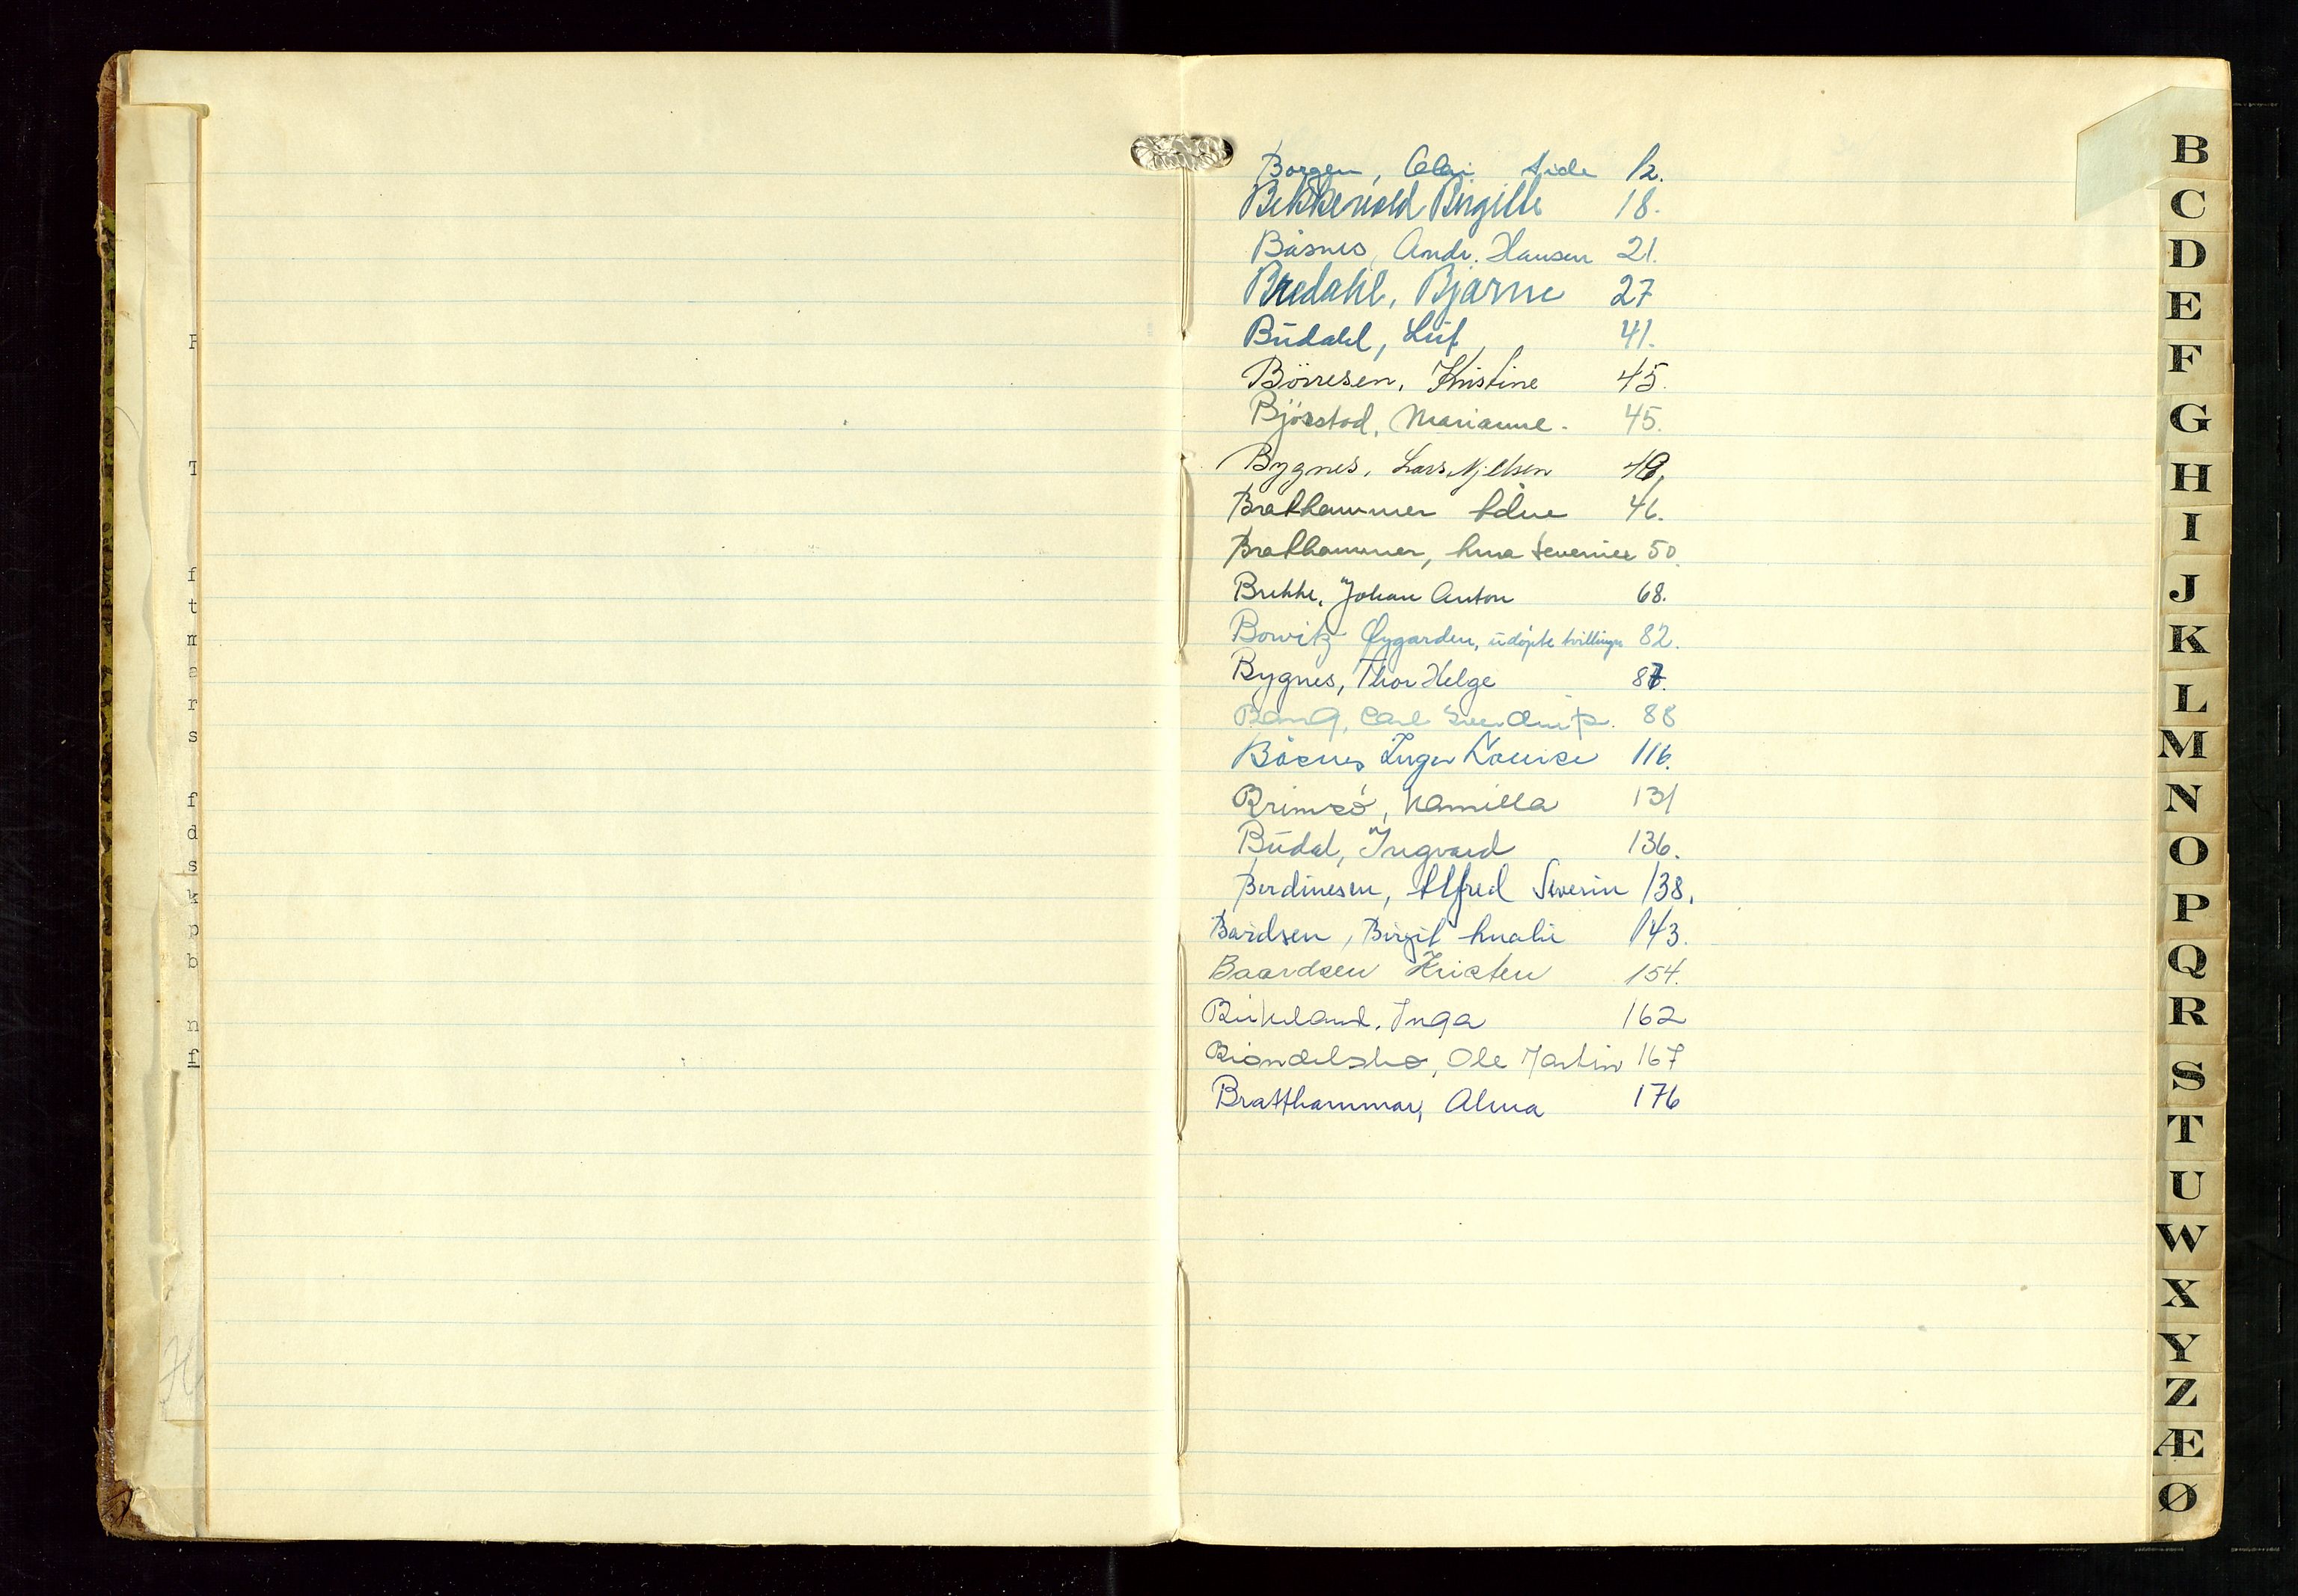 Borgen, Olai side 12.
Bekkevold Birgitte 18.
Båsnes, Andr. Hansen 21.
Bredahl, Bjarne 27
Budahl, Leif 41.
Börresen, Kristine 45.
Bjöstad, Marianne. 45.
Bygnes, Lars Njelsen 48.
Brathammer Adne 46.
Brathammer, Ana Severine 50.
Brekke, Johan Anton 68.
Borvik Øygarden, udöpte tvillinger 82.
Bygnes, Thor Helge 87.
Bang, Carl Sverdrup. 88
Båsnes Inger Lovise 116.
Brimsö, Kamilla 131
Budal, Ingvard 136.
Berdinesen, Alfred Severin 138.
Bårdsen, Birgit Amalie 143.
Baardsen Kristen 154.
Birkeland, Inga 162
Ole Martin 167
Bratthammar, Alma 176
B
C
D
E
F
G
H
I
J
K
L
M
N
O
P
Q
R
S
T
U
W
X
Y
Z
Æ
Ø
f
t
m
a
r
s
f
d
s
k
p
b
n
f